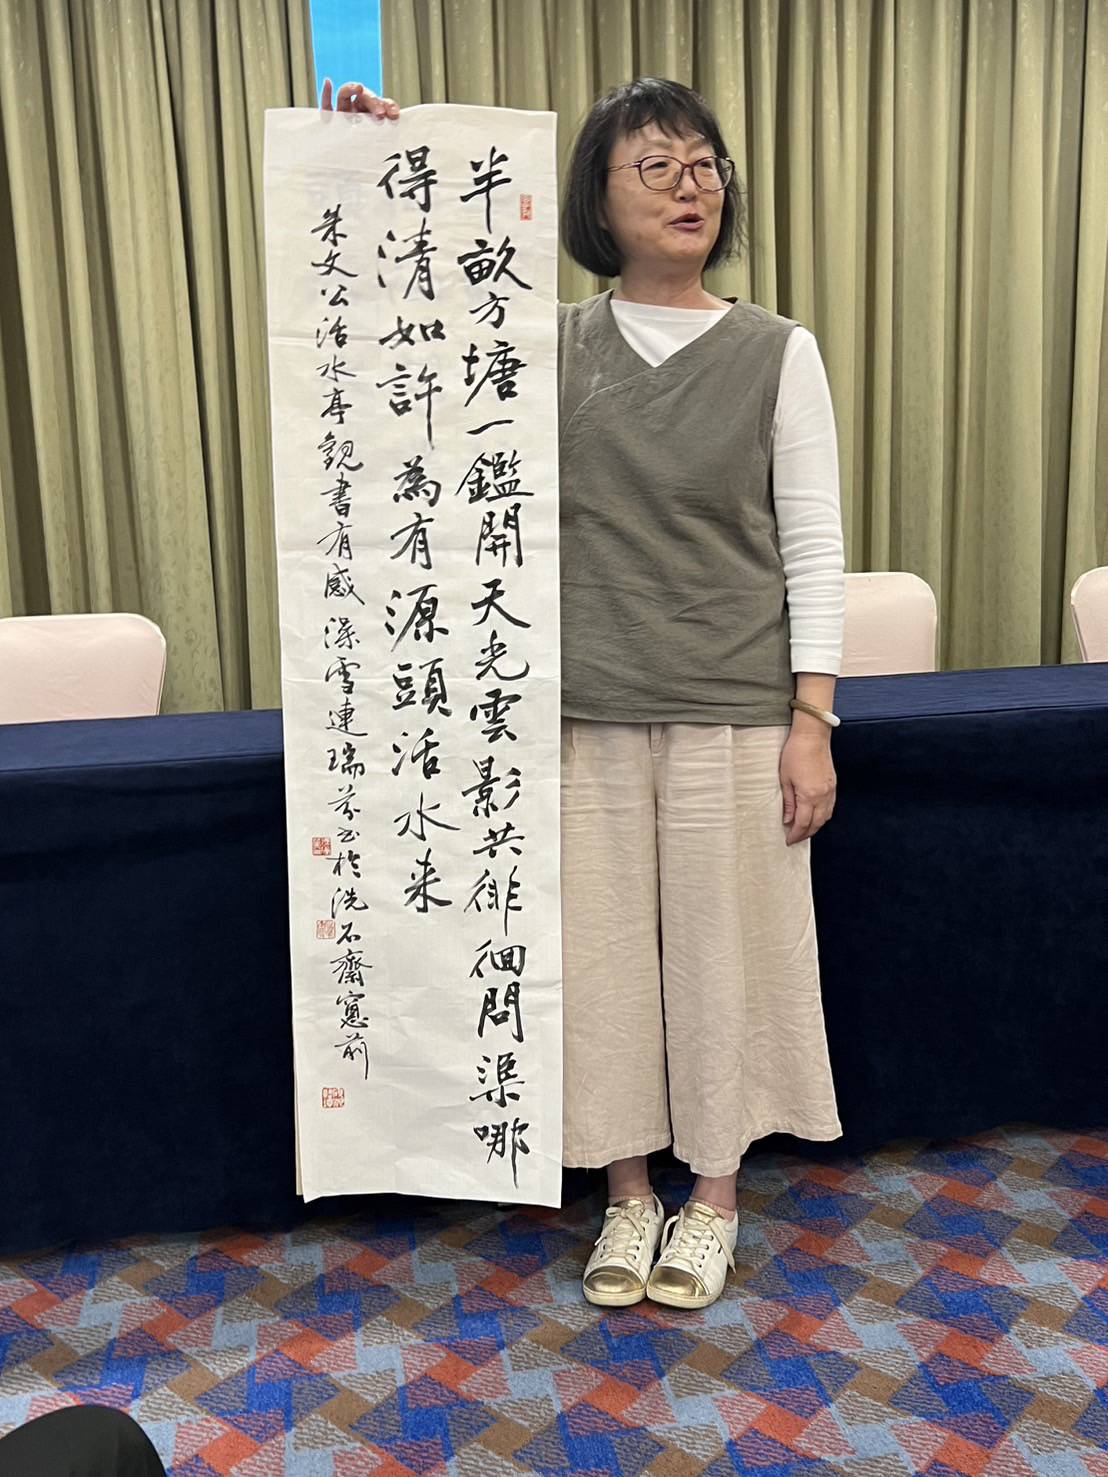 半畝方塘一鑑開天光雲影共徘徊問渠哪
得清如許為有源頭活水来
朱文公活水亭觀書有感 澡雪連瑞芬书於洗石齋窗前